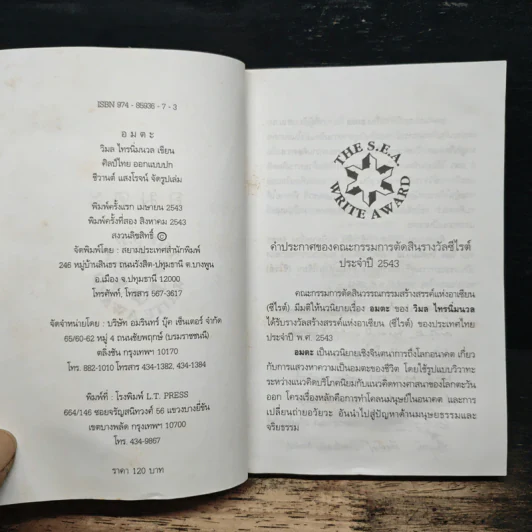 ISBN 974 - 85936 - 7 - 3
อ ม ต ะ
วิมล ไทรนิ่มนวล เขียน
ศิลป์ไทย ออกแบบปก
ชีวานต์ แสงโรจน์ จัดรูปเล่ม
พิมพ์ครั้งแรก เมษายน 2543
พิมพ์ครั้งที่สอง สิงหาคม 2543
สงวนลิขสิทธิ์ ©
จัดพิมพ์โดย : สยามประเทศสำนักพิมพ์
246 หมู่บ้านสินธร ถนนรังสิต-ปทุมธานี ต.บางพูน
อ.เมือง จ.ปทุมธานี 12000
โทรศัพท์, โทรสาร 567-3617
จัดจำหน่ายโดย : บริษัท อมรินทร์ บุ๊ค เซ็นเตอร์ จำกัด
65/60-62 หมู่ 4 ถนนชัยพฤกษ์ (บรมราชชนนี)
ตลิ่งชัน กรุงเทพฯ 10170
โทร. 882-1010 โทรสาร 434-1382, 434-1384
พิมพ์ที่ : โรงพิมพ์ L.T. PRESS
654/146 ซอยจรัญสนิทวงศ์ 56 แขวงบางยี่ขัน
เขตบางพลัด กรุงเทพฯ 10700
โทร. 434-9867
ราคา 120 บาท
THE S.E.A.
WRITE AWARD
คำประกาศของคณะกรรมการตัดสินรางวัลซีไรต์
ประจำปี 2543
คณะกรรมการตัดสินวรรณกรรมสร้างสรรค์แห่งอาเซียน
(ซีไรต์) มีมติให้นวนิยายเรื่อง อมตะ ของ วิมล ไทรนิ่มนวล
ได้รับรางวัลสร้างสรรค์แห่งอาเซียน (ซีไรต์) ของประเทศไทย
ประจำปี พ.ศ. 2543
อมตะ เป็นนวนิยายเชิงจินตนาการถึงโลกอนาคต เกี่ยว
กับการแสวงหาความเป็นอมตะของชีวิต โดยใช้รูปแบบวิวาทะ
ระหว่างแนวคิดบริโภคนิยมกับแนวคิดทางศาสนาของโลกตะวัน
ออก โครงเรื่องหลักคือการทำโคลนมนุษย์ในอนาคต และการ
เปลี่ยนถ่ายอวัยวะ อันนำไปสู่ปัญหาด้านมนุษยธรรมและ
จริยธรรม